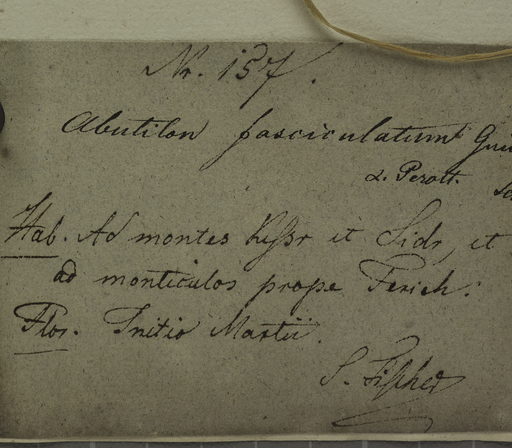 Nr. 157.
Abutilon fasciculatum Gui
& Perott.
Hab. Ad montes Keßr et Sidr, et
ad monticulos prope Ferich:
Flor. Initio Martii.
S. Fischer